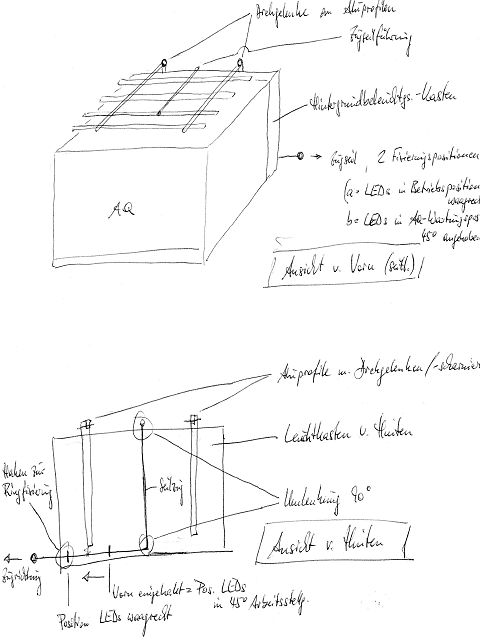 Drehgelenke an Aluprofilen
Zugseilführung
Hintergrundbeleuchtgs.-Kasten
Zugseil, 2 Fixierungspositionen
(a = LEDs in Betriebsposition
waagrecht
b = LEDs in AQ-Wartungspos.
45° angehoben
AQ
Ansicht v. Vorn (seitl.)
Aluprofile m. Drehgelenken/-scharnier
Leuchtkasten v. Hinten
Haken zur
Ringfixierung
Seilzug
Umlenkung 90°
Ansicht v. Hinten
Zugrichtung
Vorn eingehakt = Pos. LEDs
in 45° Arbeitsstellg.
Position LEDs waagrecht